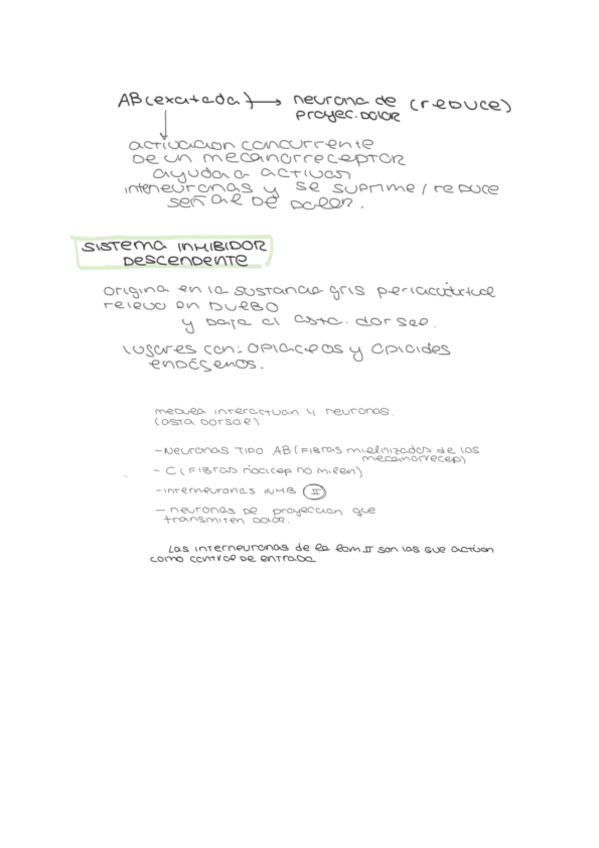 AB(exitada) → neurona de (reduce)
proyec. dolor
activacion concurrente
de un mecanorreceptor
ayuda a activar
interneuronas y se suprime/reduce
señal de dolor.
SISTEMA INHIBIDOR
DESCENDENTE
origina en la sustancia gris periacueductual
relevo en
y baja al asta. dorsal.
lugares con: opiaceos y opioides
endógenos.
medula interactuan 4 neuronas.
(asta dorsal)
-Neuronas TIPO AB (Fibras mielinizadas de los
mecanorrecep)
- C (Fibras nocicep no mielin)
-interneuronas INHB II
- neuronas de proyeccion que
transmiten dolor.
Las interneuronas de la lam II son las que actuan
como control de entrada